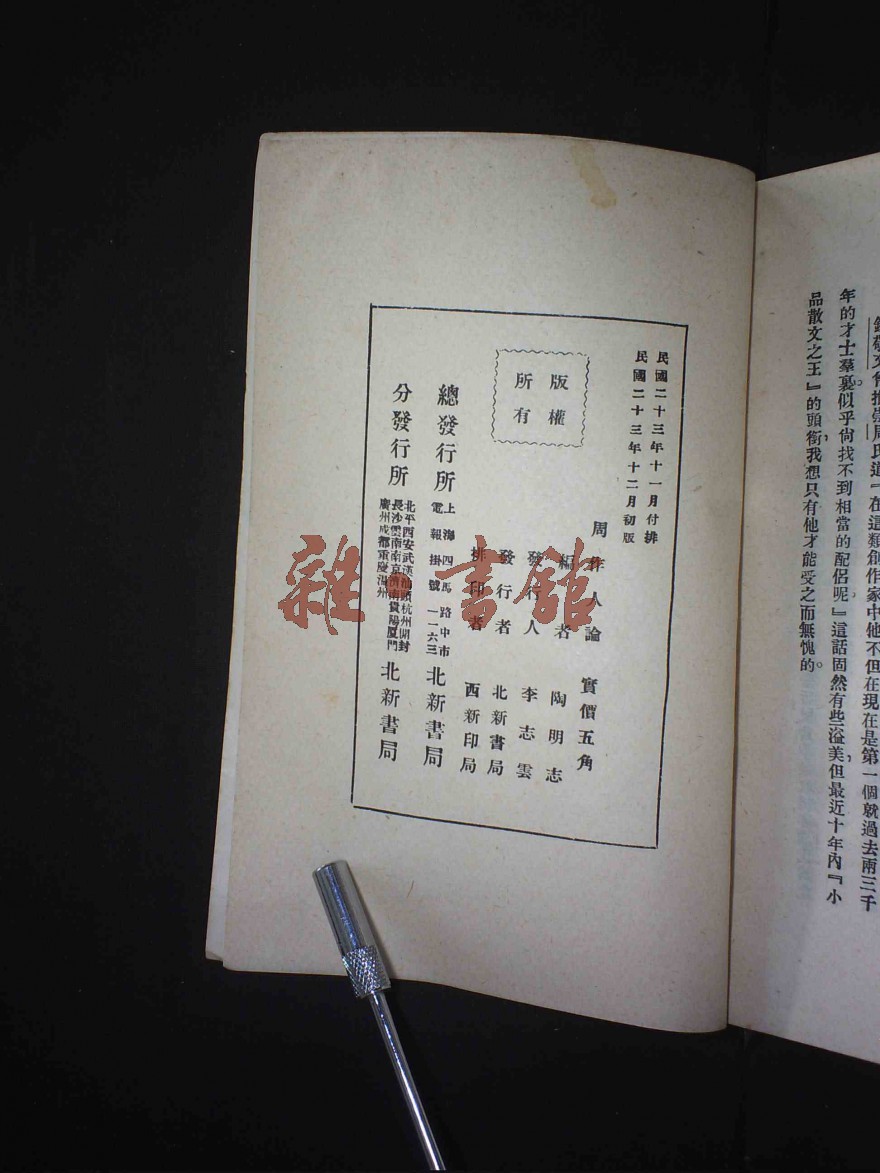 鍾敬文曾推崇周氏道『在這類創作家中他不但在現在是第一個就過去兩三千
年的才士羣裏似乎尙找不到相當的配侶呢』這話固然有些溢美但最近十年內『小
品散文之王』的頭銜我想只有他才能受之而無愧的。
民國二十三年十一月付排
民國二十三年十二月初版
周作人論 實價五角
編者 陶明志
發行人 李志雲
發行者 北新書局
排印者 西新印局
版權
所有
總發行所 上海四馬路中市 電報掛號一一六三 北新書局
分發行所 北平西安武漢汕頭杭州開封 長沙雲南南京濟南貴陽厦門 廣州成都重慶溫州 北新書局
雜書館